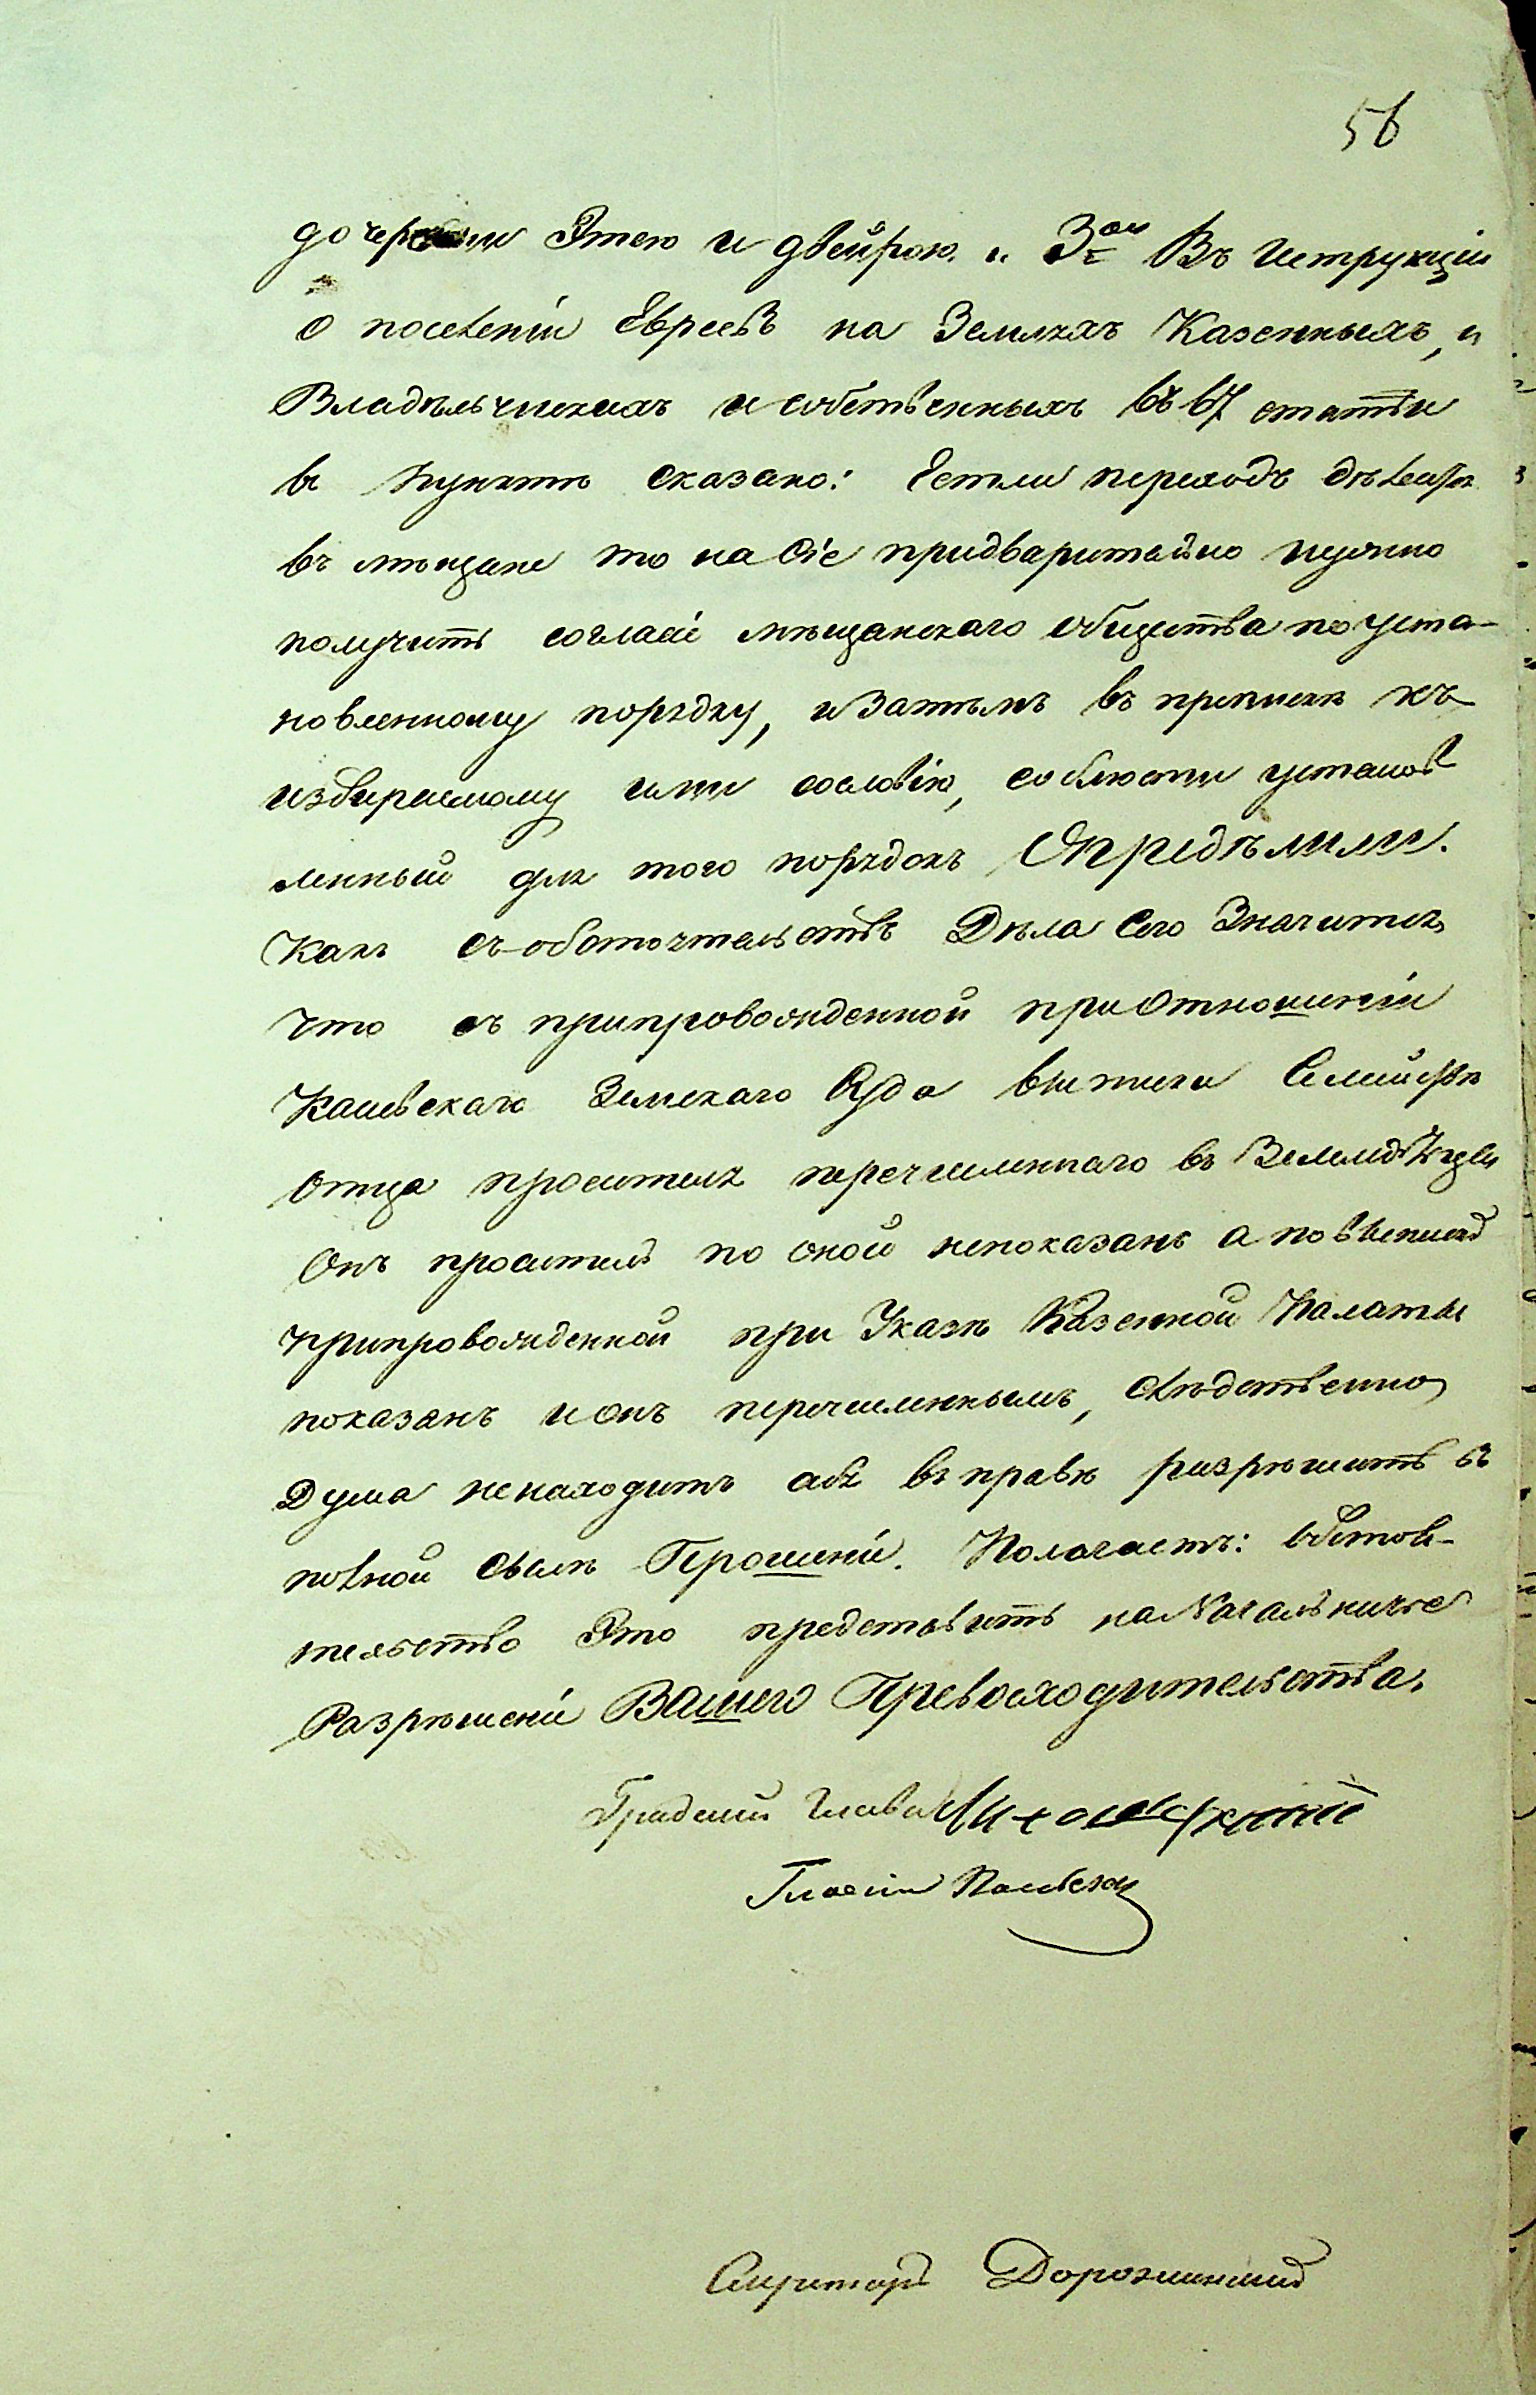 56
дочерьми Этею и двейрою. и 3ое Въ Иструкціи
о поселеніи Евреевъ на Земляхъ Казенныхъ, и
Владѣльческихъ и собственныхъ въ 67 статьи
въ пунктѣ сказано: Естли переходъ дѣлается
въ мѣщане то на сіе придварительно нужно
получить согласіе мѣщанскаго общества по уста-
новленному порядку, и Затѣмъ въ припискѣ къ
избираемому ими сословію, соблюсти установ
ленный для того порядокъ Опредѣлили.
Какъ съ обстоятельствъ Дѣла Сего Значится
что въ припровожденной при Отношеніи
Земскаго Суда выписки Семейства
Отца просителя перечисленнаго въ Земледѣльцы
Онъ проситель по оной непоказанъ а по выписки
припровожденной при Указѣ Казенной Палаты
показанъ и онъ перечисленнымъ, слѣдственно
Дума ненаходитъ себя въ правѣ разрѣшить въ
полной силѣ Прошеніе. Полагаетъ: обстоя-
тельство Это представить на Начальничье
Разрѣшеніе Вашего Превосходительства.
Градскій Глава
Гласный
Секретарь Дорожинскій